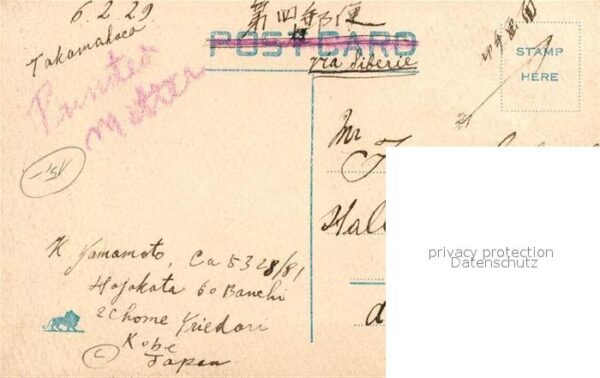 6.2.29
Takamaheca
第四種郵便
POST CARD
via Siberie
Printed
matter
切手面
STAMP
HERE
15,-
Mr
Hal
privacy protection
Datenschutz
K Yamamoto, Ca 5328/81
Hojokata 60 Banchi
2 Chome
Kobe
Japan
C
d